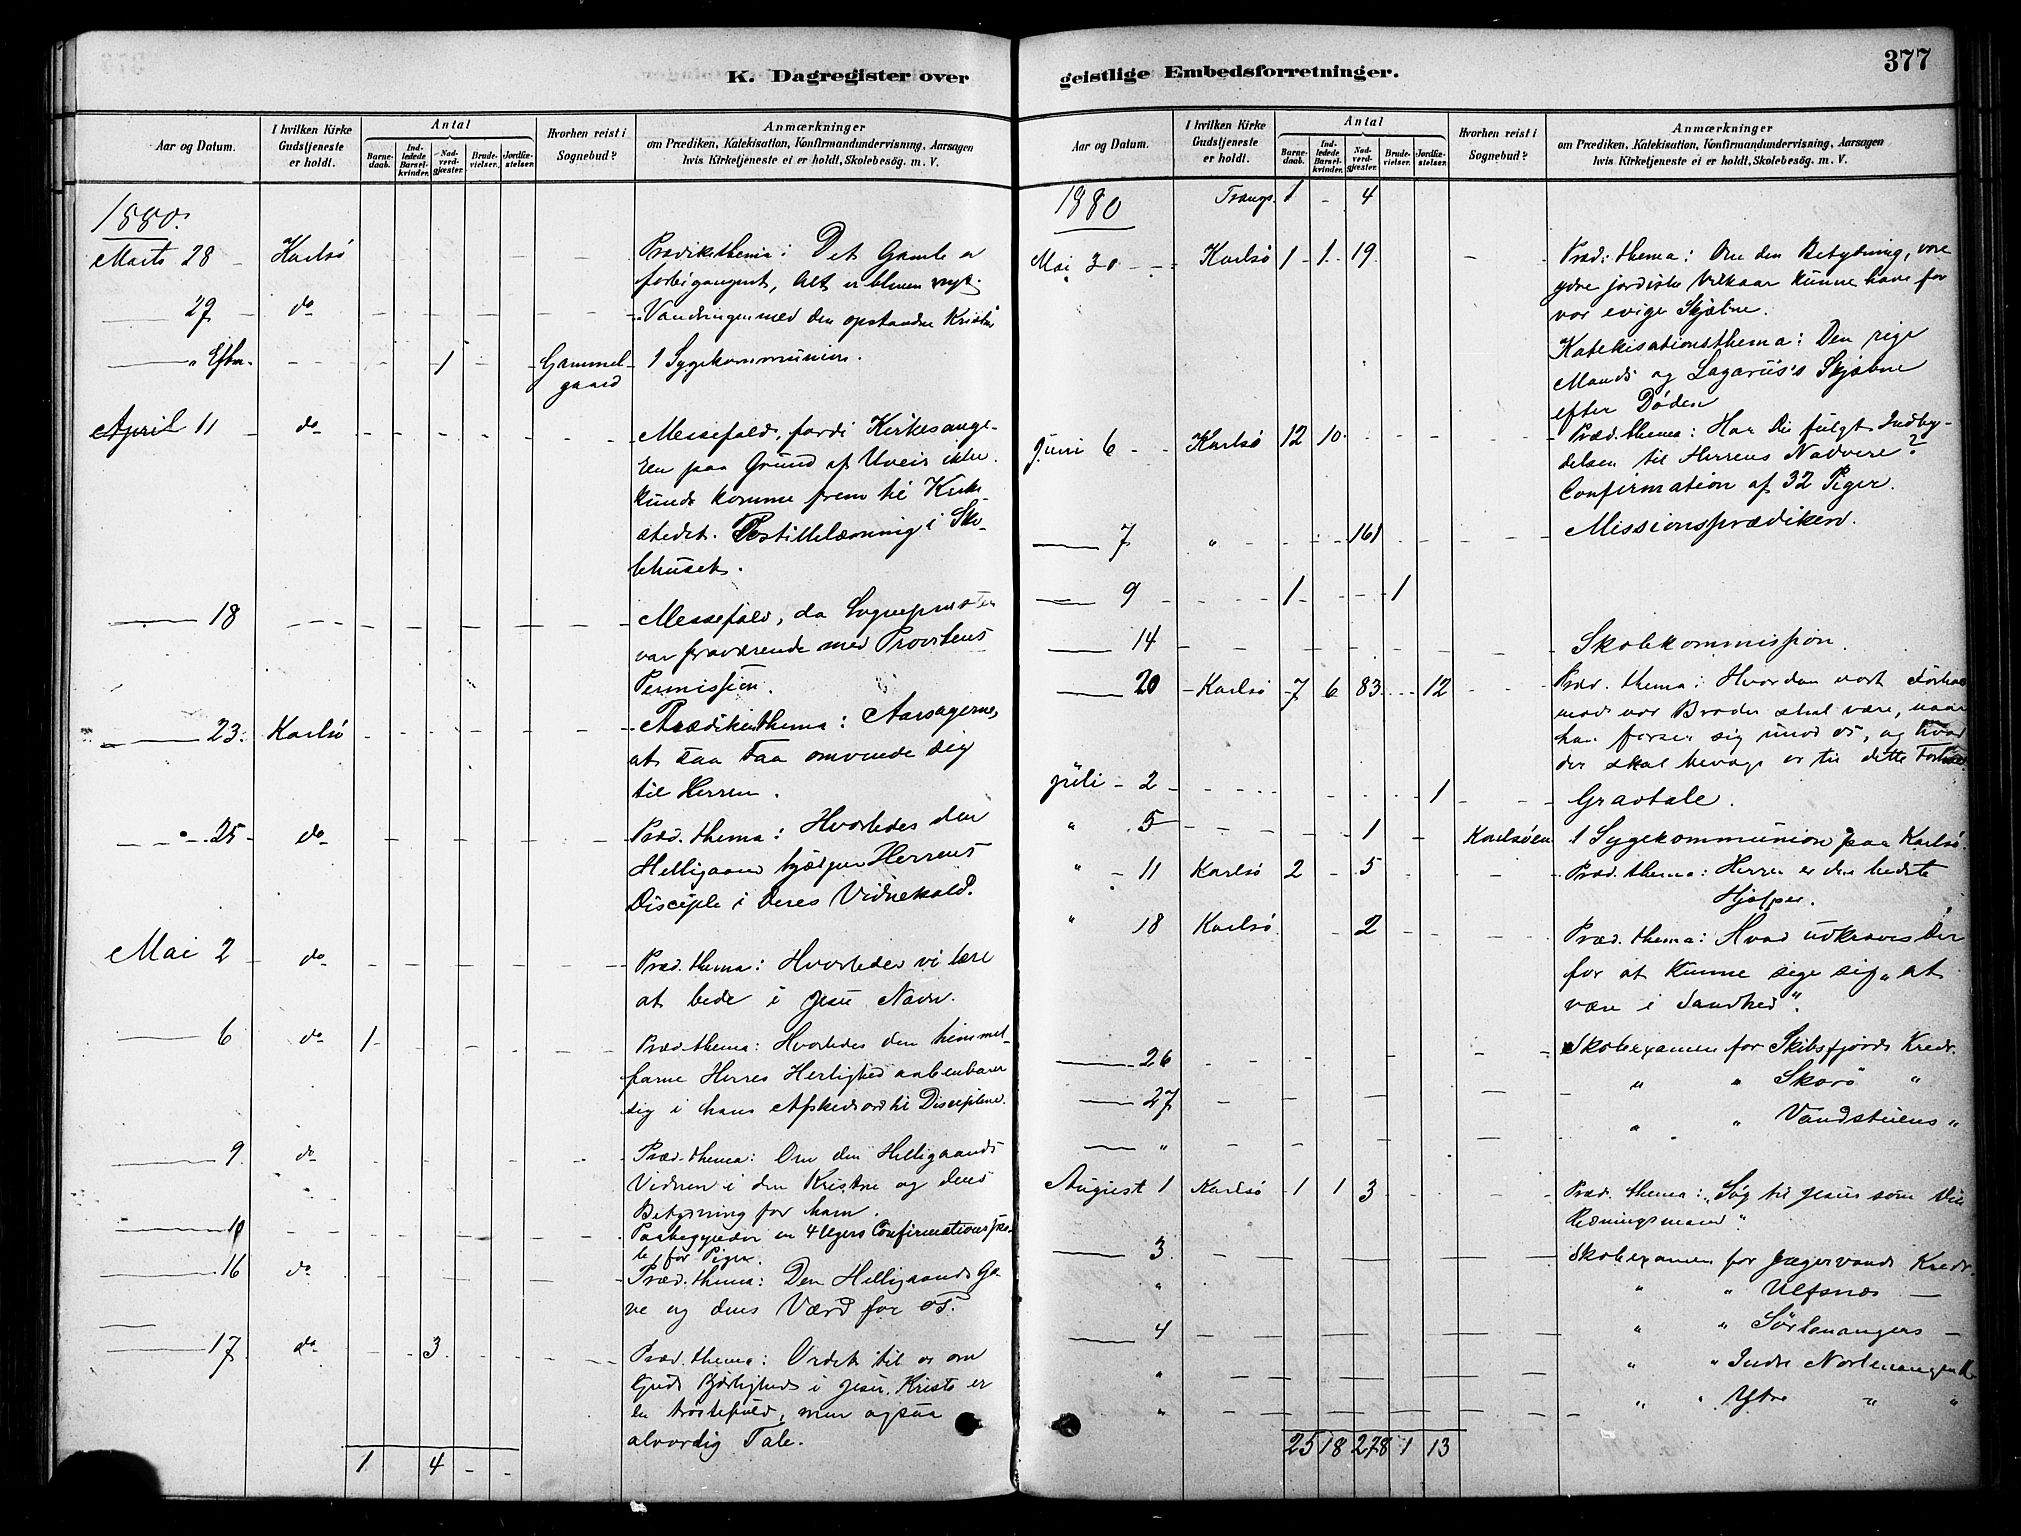 K. Dagregister over
Aar og Datum.
I hvilken Kirke Gudstjeneste er holdt.
Antal
Barne-daab.
Ind-ledede Barsel-kvinder.
Nad-verd-gjæster.
Brude-vielser.
Jordfæ-stelser.
Hvorhen reist i Sognebud?
Anmærkninger
om Prædiken, Katekisation, Konfirmandundervisning, Aarsagen
hvis Kirketjeneste ei er holdt, Skolebesøg. m. V.
1880.
Marts 28 Karlsø Prædikethema: Det Gamle er
forbigangent, Alt er bleven nyt.
29 do Vandringen med den opstandne Kristus
" Efterm. 1 Gammel- 1 Sygekommunion.
gaard
April 11 do Messefald, fordi Kirkesange-
ren paa Grund af Uveir ikke
kunde komme frem til Kirke-
stedet. Postillelæsning i Sko-
lehuset.
18 Messefald, da Sognepresten
var fraværende med Provstens
Permission.
23. Karlsø Prædikenthema: Aarsagerne,
at saa Faa omvende sig
til Herren.
25 do Præd. thema: Hvorledes den
Helligaand hjælper Herrens
Disciple i Deres Vidnekald.
Mai 2 do Præd. thema: Hvorledes vi lære
at bede i Jesu Navn.
6 do 1 Præd. thema: Hvorledes den himmel-
farne Herres Herlighed aabenbarer
sig i hans Afskedsord til Disciplene.
9 do Præd. thema: Om den Helligaands
Vidnen i den Kristne og dens
Betydning for ham.
10 Paabegyndes en 4 Ugers Confirmationssko-
le for Piger.
16 do Præd. thema: Den Helligaands Ga-
ve og dens Værd for os.
17 do 3 Præd. thema: Ordet til os om
Guds Kjærlighed i Jesu Kristo er
en trøstefuld, men ogsaa
alvordig Tale.
1 4 - -
geistlige Embedsforretninger.
377
Aar og Datum.
I hvilken Kirke Gudstjeneste er holdt.
Antal
Barne-daab.
Ind-ledede Barsel-kvinder.
Nad-verd-gjæster.
Brude-vielser.
Jordfæ-stelser.
Hvorhen reist i Sognebud?
Anmærkninger
om Prædiken, Katekisation, Konfirmandundervisning, Aarsagen
hvis Kirketjeneste ei er holdt, Skolebesøg. m. V.
1880 Transp. 1 - 4
Mai 30 Karlsø 1 1 19 Præd: thema: Om den Betydning, vore
ydre jordiske Vilkaar kunne have for
vor evige Skjæbne.
Katekisationsthema: Den rige
Mands og Lazarus's Skjæbne
efter Døden
Juni 6 Karlsø 12 10 Præd. thema: Har Du fulgt Indby-
delsen til Herrens Nadvere?
Confirmation af 32 Piger.
7 " 161 Missionsprædiken.
9 1 1
14 Skolekommission.
20 Karlsø 7 6 83 12 Præd. thema: Hvordan vort Forhold
mod vor Broder skal være, naar
han forser sig imod os, og hvad
der skal bevæge os til dette Forhold.
Juli 2 1 Gravtale.
" 5 1 Karlsøen 1 Sygekommunion paa Karlsø.
" 11 Karlsø 2 5 Præd. thema: Herren er den bedste
Hjælper.
" 18 Karlsø 2 Præd. thema: Hvad udkræves der
for at kunne sige sig „at
være i Sandhed".
26 Skolexamen for Skibsfjords Kreds.
27 " " Skorø "
" " " Vandstuens "
August 1 Karlsø 1 1 3 Præd. thema: Søg til Jesus som din
Redningsmand".
3 Skolexamen for Jægervands Kreds.
" " " Ulfsnæs —
4 " " Sørlenangers —
" " " Indre Norlenangen
" " " Ytre " "
25 18 278 1 13